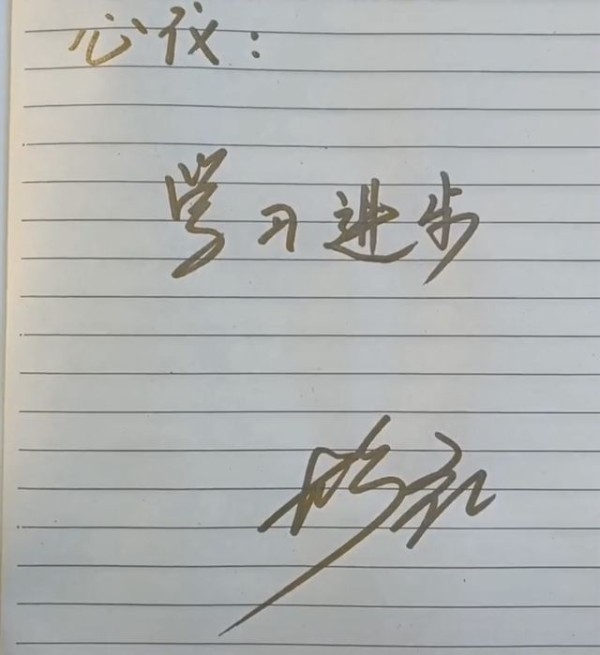 心仪：
学习进步